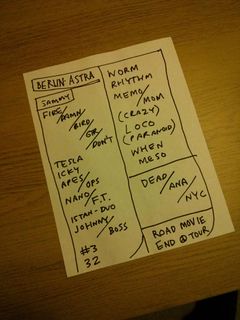 BERLIN: ASTRA
SAMMY
FIRE/
DAMN/
BIRD/
GR/
DON'T
TESLA
ICKY
APES/OPS
NANO/F.T.
ISTAN-DUO
JOHNNY/BOSS
#3
32
WORM
RHYTHM
MEMO/MOM
(CRAZY)
LOCO
(PARANOID)
WHEN
MESO
DEAD/ANA
/NYC
ROAD MOVIE
END @ TOUR